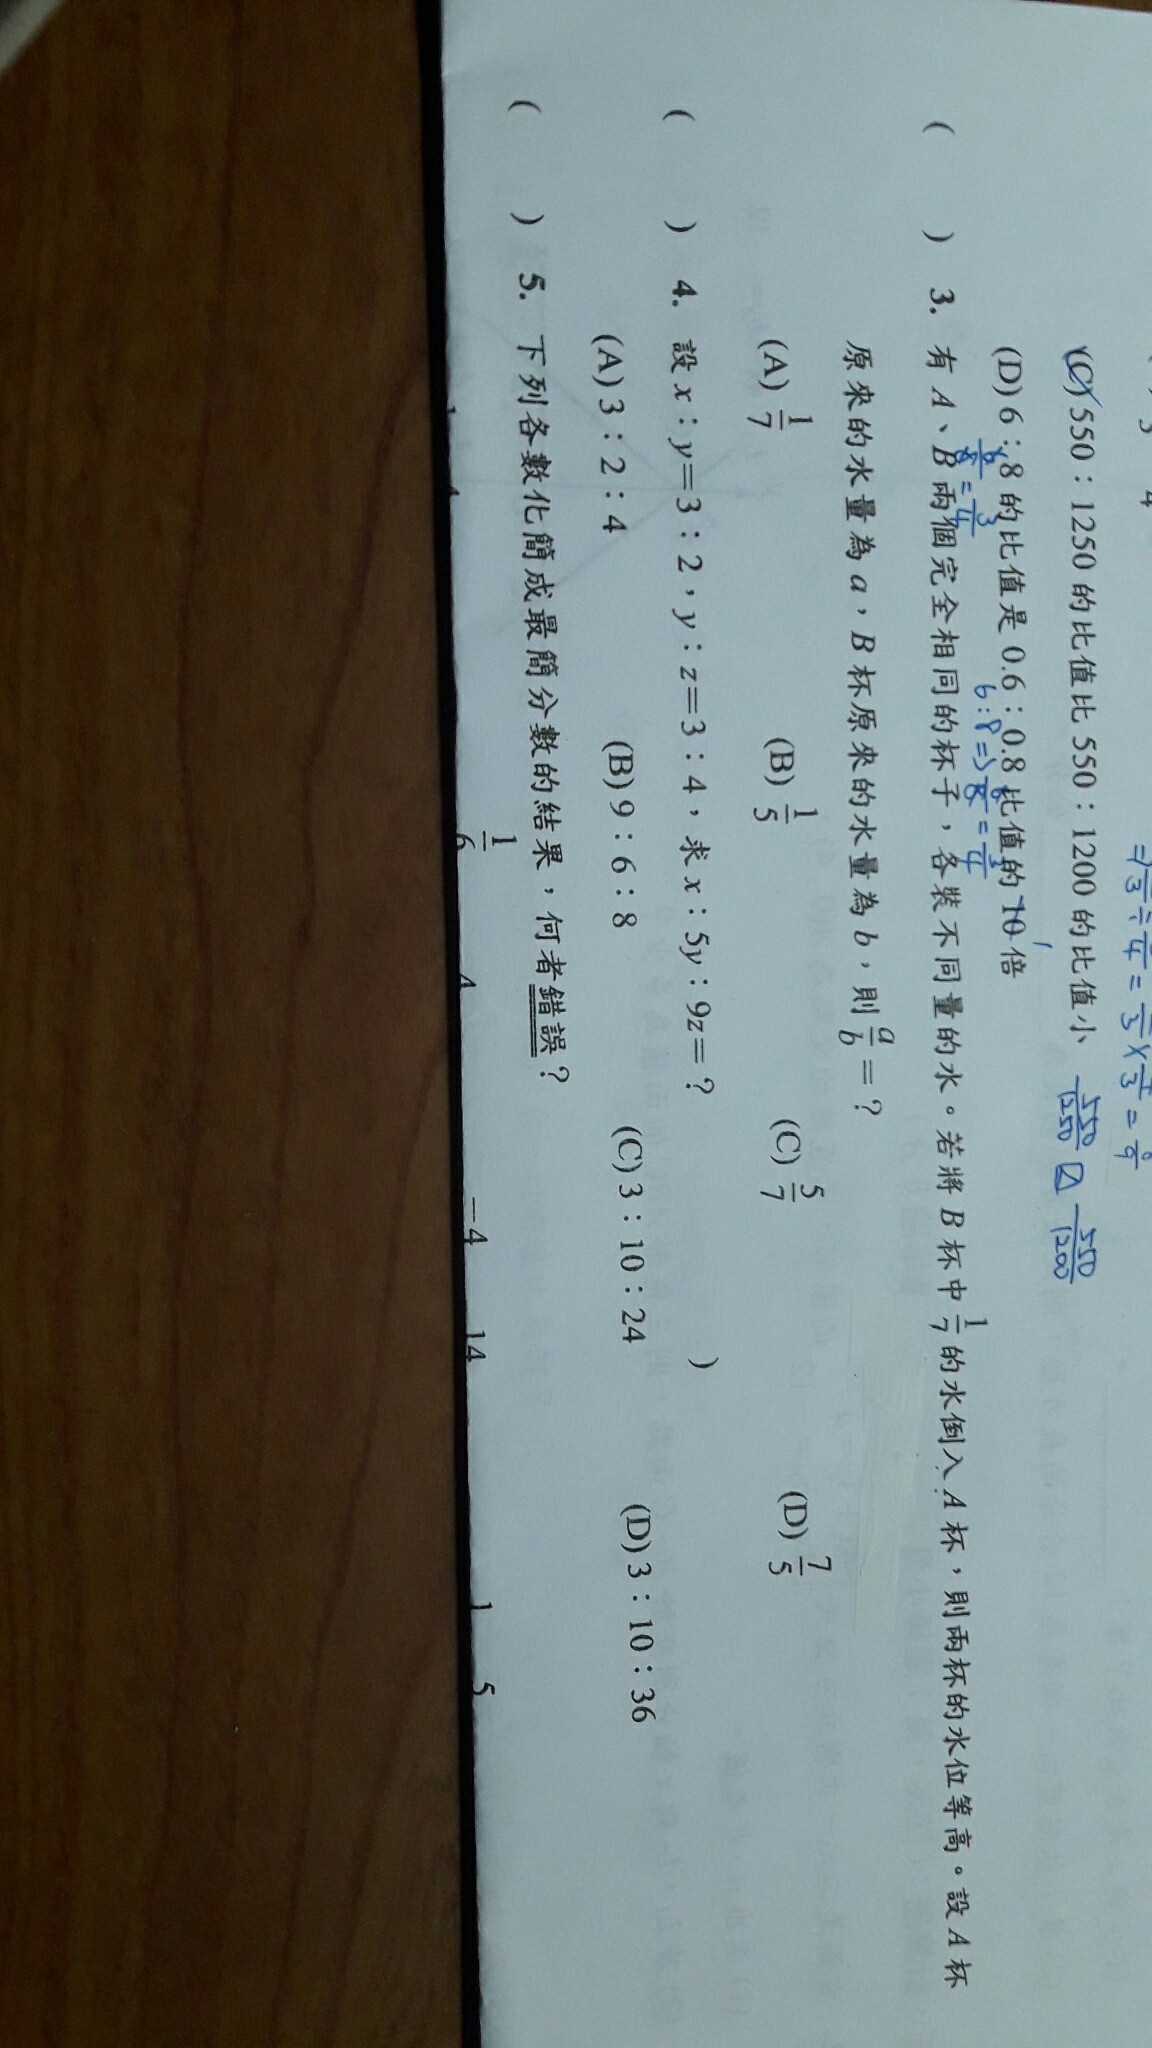 (C) 550：1250 的比值比 550：1200 的比值小 550/1250 550/1200
(D) 6：8 的比值是 0.6：0.8 比值的 10 倍 1
6：8 ⇒ 6/8 = 3/4
( ) 3. 有 A、B 兩個完全相同的杯子，各裝不同量的水。若將 B 杯中 1/7 的水倒入 A 杯，則兩杯的水位等高。設 A 杯
原來的水量為 a，B 杯原來的水量為 b，則 a/b = ?
(A) 1/7 (B) 1/5 (C) 5/7 (D) 7/5
( ) 4. 設 x：y＝3：2，y：z＝3：4，求 x：5y：9z＝? )
(A) 3：2：4 (B) 9：6：8 (C) 3：10：24 (D) 3：10：36
( ) 5. 下列各數化簡成最簡分數的結果，何者錯誤？
1/6 4 −4 14 1 5